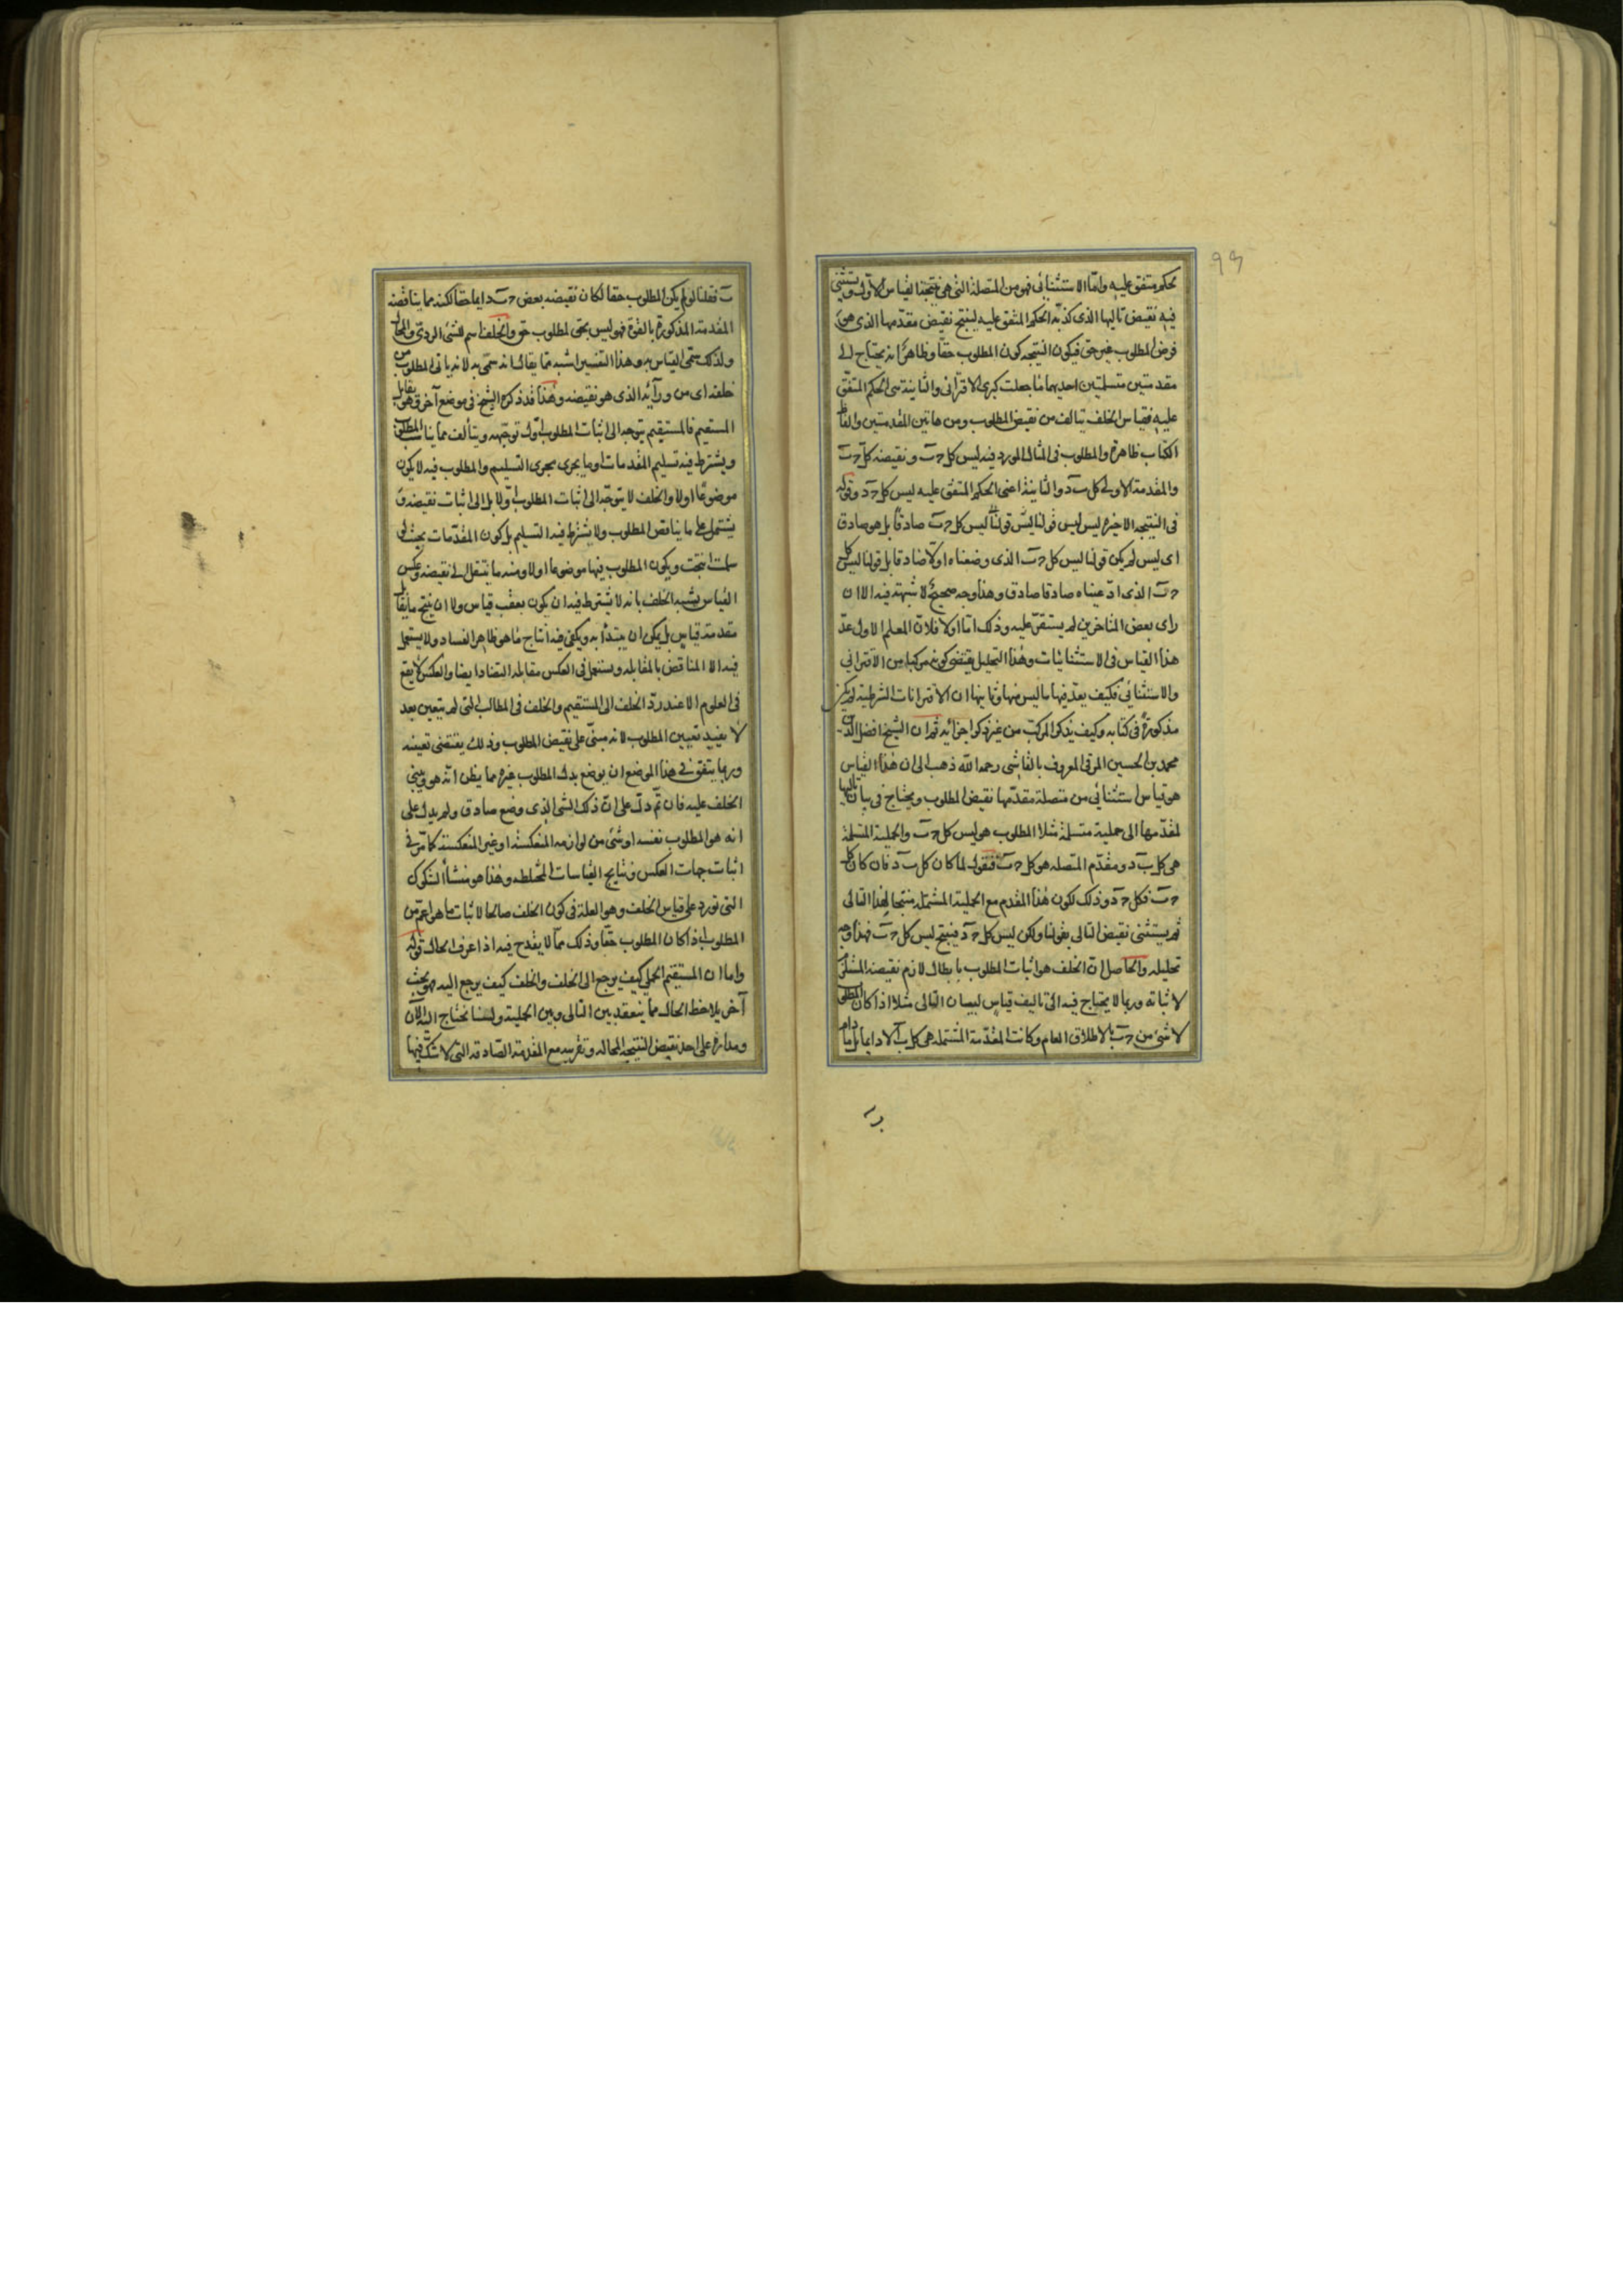 بحكم متفق عليه واما الاستثنائي فهو من المتصلة التي هي نتيجة القياس الاول ويستثنى
فيه نقيض تاليها الذي كذبه الحكم المتفق عليه لينتج نقيض مقدمها الذي هو
فرض المطلوب غير حق فيكون النتيجة كون المطلوب حقا وظاهر انه يحتاج الى
مقدمتين متسلمتين احديهما ما جعلت كبرى الاقتراني والثانية هي الحكم المتفق
عليه فقياس الخلف يتالف من نقيض المطلوب ومن هاتين المقدمتين والفاظ
الكتاب ظاهرة والمطلوب في المثال المورد فيه ليس كل جـ ب ونقيضه كل جـ ب
والمقدمة الاولى كل ب د والثانية اعني الحكم المتفق عليه ليس كل جـ د وقوله
في النتيجة الاخيرة ليس ليس قولنا ليس كل جـ ب صادقا بل هو صادق
اى ليس لم يكن قولنا ليس كل جـ ب الذي وضعناه اولا صادقا بل قولنا ليس كل
جـ ب الذي ادعيناه صادقا صادق وهذا وجه صحيح لا شبهة فيه الا ان
راى بعض المتاخرين لم يستقر عليه وذلك اما اولا فلان المعلم الاول عد
هذا القياس في الاستثنائيات وهذا التحليل يقتضي كونه مركبا من الاقتراني
والاستثنائي فكيف يعد فيها ما ليس منها وثانيها ان الاقترانات الشرطية لم يكن
مذكورة في كتابه وكيف يذكر المركب من غير ذكر اجزائه ثم ان الشيخ افضل الدين
محمد بن الحسين المرقي المعروف بالقاشي رحمه الله ذهب الى ان هذا القياس
هو قياس استثنائي من متصلة مقدمها نقيض المطلوب ويحتاج في بيان تاليها
لمقدمها الى حملية متسلمة مثلا المطلوب هو ليس كل جـ ب والحملية المتسلمة
هي كل ب د ومقدم المتصلة هو كل جـ ب فنقول لما كان كل ب د فان كان كل
جـ ب فكل جـ د وذلك لكون هذا المقدم مع الحملية المشتملة منتجا لهذا التالي
ثم يستثنى نقيض التالي بقولنا ولكن ليس كل جـ د فينتج ليس كل جـ ب فهذا وجه
تحليله والحاصل ان الخلف هو اثبات المطلوب بابطال لازم نقيضه المستلزم
لاثباته وربما لا يحتاج فيه الى تاليف قياس لبيان التالي مثلا اذا كان المطلوب
لا شيء من جـ ب بالاطلاق العام وكانت المقدمة المشتملة هي كل ب ا لا دايما بل ما دام
ب فقلنا لو لم يكن المطلوب حقا لكان نقيضه بعض جـ ب دايما حقا لكنه مما يناقضه
المقدمة المذكورة بالقوة فهو ليس بحق لمطلوب حق والخلف اسم للشيء الردي والمحال
ولذلك سمى القياس به وهذا التفسير اشبه مما يقال انه سمى به لانه ياتي المطلوب من
خلفه اى من ورآئه الذي هو نقيضه وهذا قد ذكره الشيخ في موضع آخر قوله يقابل
المستقيم فالمستقيم يتوجه الى اثبات المطلوب اول توجهه ويتألف مما يناسب المطلوب
ويشترط فيه تسليم المقدمات او ما يجرى مجرى التسليم والمطلوب فيه لا يكون
موضوعا اولا والخلف لا يتوجه الى اثبات المطلوب اولا بل الى اثبات نقيضه و
يشتمل على ما يناقض المطلوب ولا يشترط فيه التسليم بل كون المقدمات بحيث لو
سلمت انتجت ويكون المطلوب فيها موضوعا اولا ومنه ما ينتقل الى نقيضه وعكس
القياس يشبه الخلف بانه لا يشترط فيه ان يكون بعقب قياس ولا ان ينتج ما يقابل
مقدمة قياس بل يمكن ان يبتدأ به ويكفى فيه انتاج ما هو ظاهر الفساد ولا يستعمل
فيه الا المناقض بالمقابلة ويستعمل في العكس مقابلة التضاد ايضا والعكس لا يقع
في العلوم الا عند رد الخلف الى المستقيم والخلف في المطالب التي لم يتعين بعد
لا يفيد تعيين المطلوب لانه مبنى على نقيض المطلوب وذلك يقتضي تعينه
وربما يتفق في هذا الموضع ان يوضع بدل المطلوب غيره مما يظن انه هو ويبنى
الخلف عليه فان تم دل على ان ذلك الشئ الذي وضع صادق ولم يدل على
انه هو المطلوب نفسه او شئ من لوازمه المنعكسة او غير المنعكسة كما مر في
اثبات جهات العكس ونتايج القياسات المختلطة وهذا هو منشأ الشكوك
التي تورد على قياس الخلف وهو العلة في كون الخلف صالحا لاثبات ما هو اعم من
المطلوب اذا كان المطلوب حقا وذلك مما لا يقدح فيه اذا عرف الحال قوله
واما ان المستقيم الحملي كيف يرجع الى الخلف والخلف كيف يرجع اليه فهو بحث
آخر يلاحظ الحال مما ينعقد بين التالي وبين الحملية ولسنا نحتاج اليه الآن
ومداره على اخذ نقيض النتيجة المحالة وتقريبه مع المقدمة الصادقة التي لا شك فيها